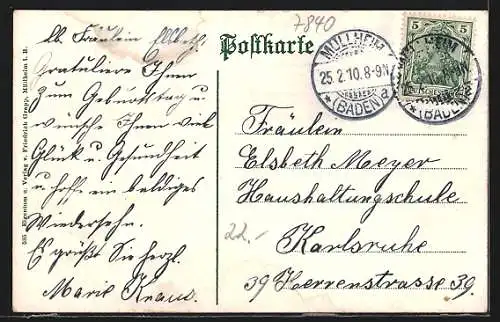 7840
Lb. Fräulein Elsbeth!
Gratuliere Ihnen
zum Geburtstag u.
wünsche Ihnen viel
Glück u. Gesundheit
u. hoffe ein baldiges
Wiedersehn.
Es grüßt Sie herzl.
Marie Knaus.
Postkarte
MÜLLHEIM
25.2.10.8-9N.
* (BADEN) a
5 5
Fräulein
Elsbeth Meyer
Haushaltungsschule
Karlsruhe
39 Herrenstrasse 39.
22.-
535 Eigentum u. Verlag v. Friedrich Grapp, Müllheim i. B.